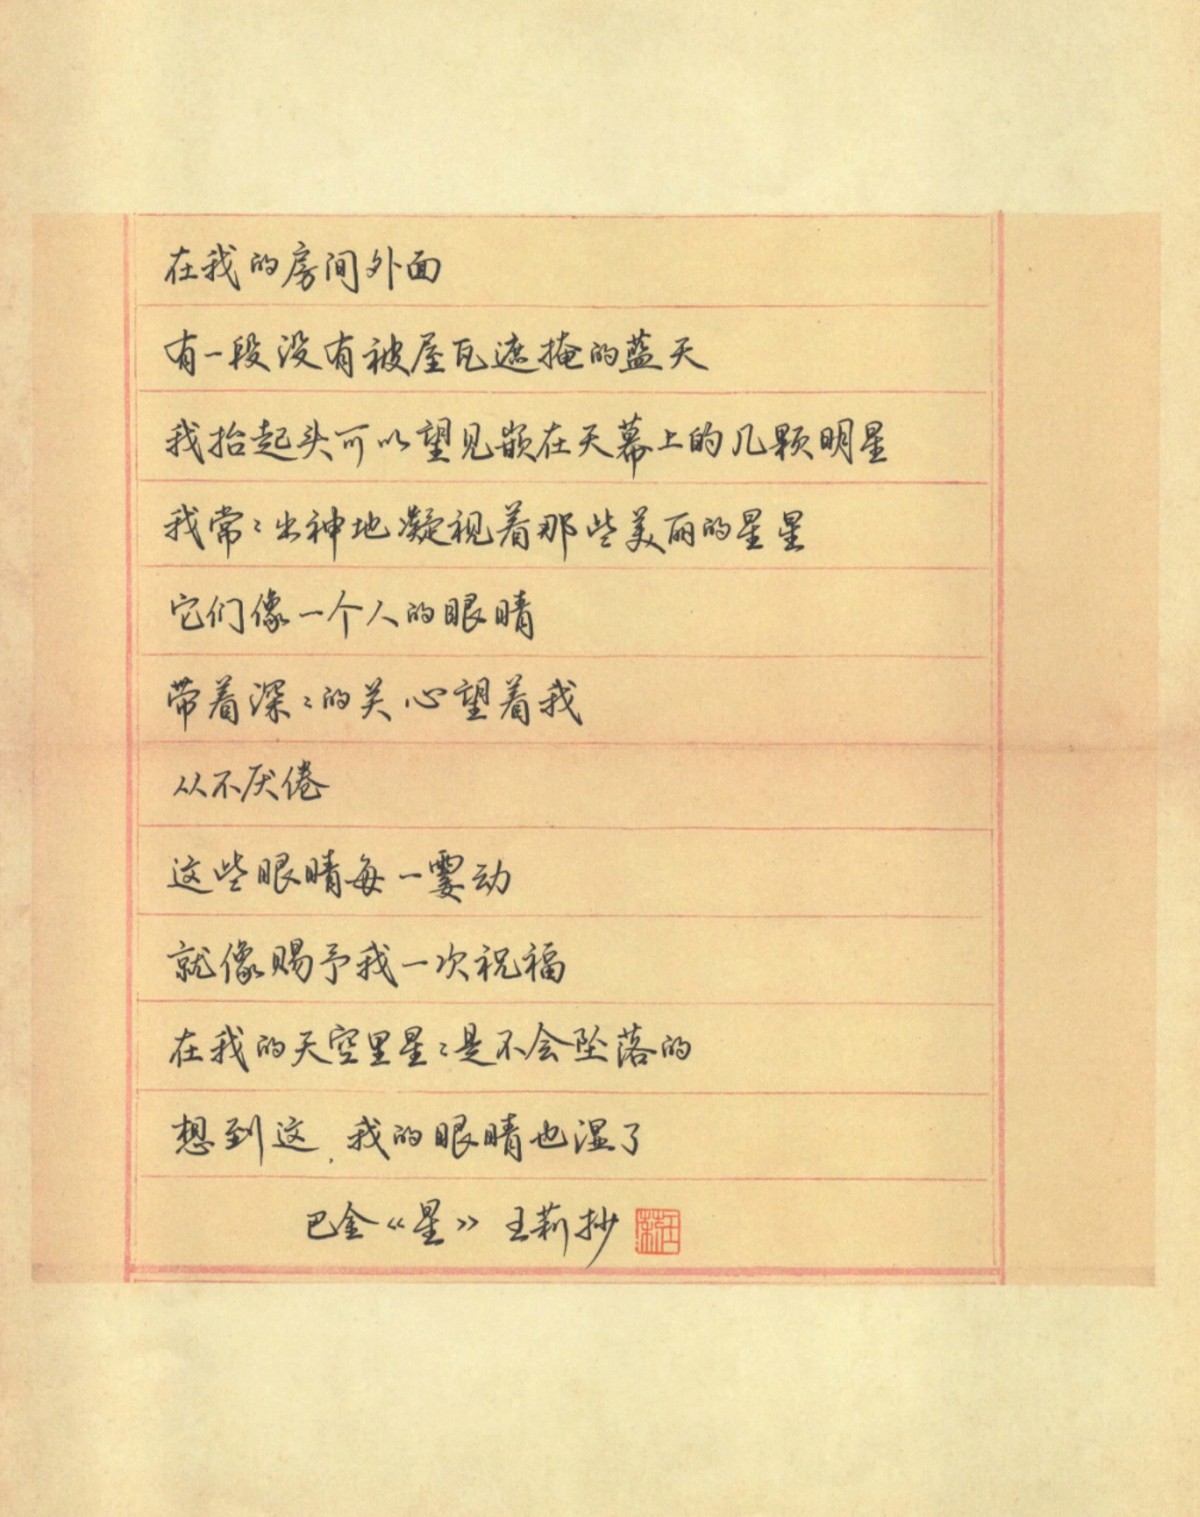 在我的房间外面
有一段没有被屋瓦遮掩的蓝天
我抬起头可以望见嵌在天幕上的几颗明星
我常:出神地凝视着那些美丽的星星
它们像一个人的眼睛
带着深:的关心望着我
从不厌倦
这些眼睛每一霎动
就像赐予我一次祝福
在我的天空里星:是不会坠落的
想到这,我的眼睛也湿了
巴金《星》 王莉抄